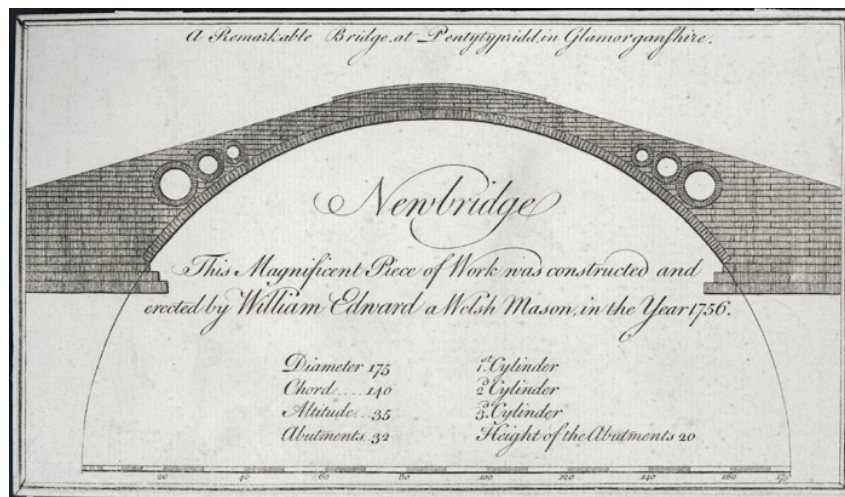 A Remarkable Bridge, at Pentytypridd, in Glamorganshire.
Newbridge
This Magnificent Piece of Work was constructed and
erected by William Edward a Welsh Mason, in the Year 1756.
Diameter 175 1.st Cylinder
Chord.....140 2.d Cylinder
Altitude...35 3.d Cylinder
Abutments 32 Height of the Abutments 20
20 40 60 80 100 120 140 160 175